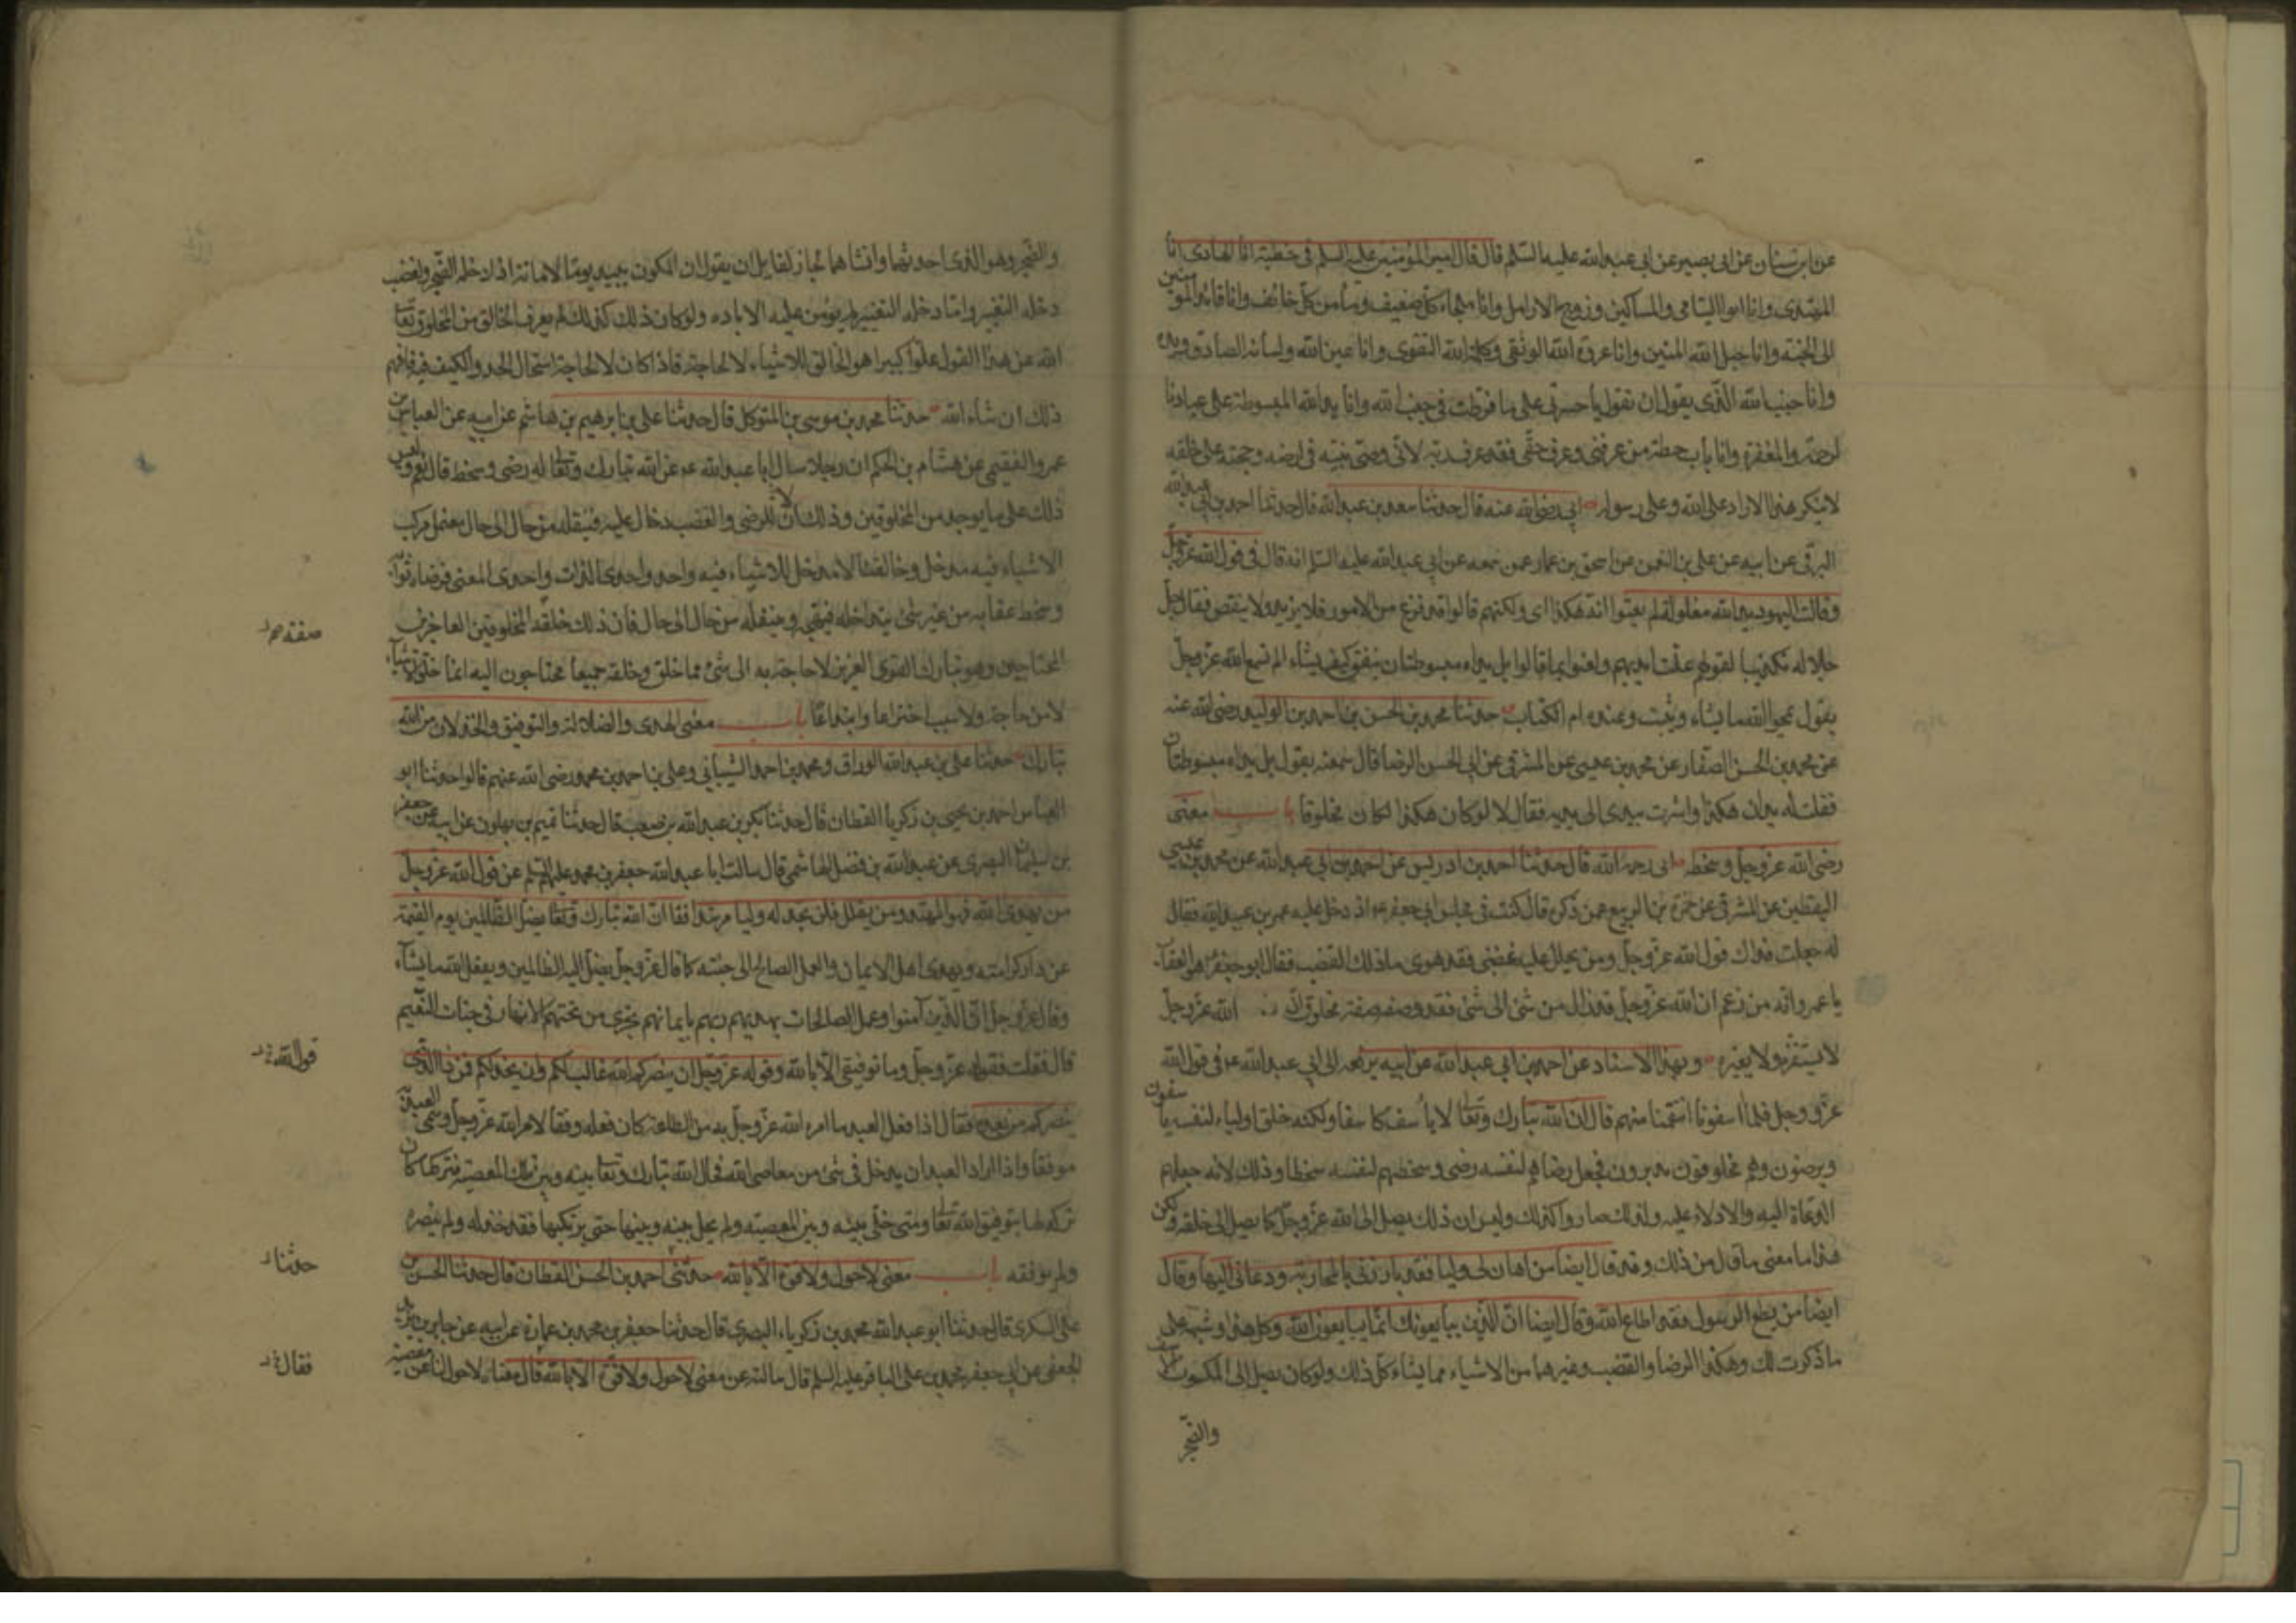 عن ابن سنان عن ابى بصير عن ابى عبد الله عليه السلم قال قال امير المؤمنين عليه السلم فى خطبته انا الهادى انا
المهتدى وانا ابو اليتامى والمساكين وزوج الارامل وانا ملجاء كل ضعيف ومأمن كل خائف وانا قائد المؤمنين
الى الجنة وانا حبل الله المتين وانا عروة الله الوثقى وكلمة الله التقوى وانا عين الله ولسانه الصادق ويده
وانا جنب الله الذى يقول ان تقول يا حسرتى على ما فرطت فى جنب الله وانا يد الله المبسوطة على عباده
لرحمة والمغفرة وانا باب حطة من عرفنى وعرف حقى فقد عرف ربه لانى وصى نبيه فى ارضه وحجته على خلقه
لا ينكر هذا الا راد على الله وعلى رسوله ابى رضى الله عنه قال حدثنا سعد بن عبد الله قال حدثنا احمد بن ابى عبد الله
البرقى عن ابيه عن على بن النعمن عن اسحق بن عمار عمن سمعه عن ابى عبد الله عليه السلم انه قال فى قول الله عز وجل
وقالت اليهود يد الله مغلولة لم يعنوا انه هكذا اى ولكنهم قالوا قد فرغ من الامور فلا يزيد ولا ينقص فقال جل
جلاله تكذيبا لقولهم غلت ايديهم ولعنوا بما قالوا بل يداه مبسوطتان ينفق كيف يشاء الم تسمع الله عز وجل
يقول يمحوا الله ما يشاء ويثبت وعنده ام الكتاب حدثنا محمد بن الحسن بن احمد بن الوليد رضى الله عنه
عن محمد بن الحسن الصفار عن محمد بن عيسى عن المشرقى عن ابى الحسن الرضا قال سمعته يقول بل يداه مبسوطتان
فقلت له يدان هكذا واشرت بيدى الى يديه فقال لا لو كان هكذا لكان مخلوقا باب معنى
رضى الله عز وجل وسخطه ابى رحمه الله قال حدثنا احمد بن ادريس عن احمد بن ابى عبد الله عن محمد بن عيسى
اليقطين عن المشرقى عن حمزة بن الربيع عمن ذكره قال كنت فى مجلس ابى جعفر ع اذ دخل عليه عمرو بن عبيد فقال
له جعلت فداك قول الله عز وجل ومن يحلل عليه غضبى فقد هوى ما ذلك الغضب فقال ابو جعفر هو العقاب
يا عمرو انه من زعم ان الله عز وجل قد زال من شئ الى شئ فقد وصفه صفة مخلوق ان الله عز وجل
لا يستفزه ولا يغيره وبهذا الاسناد عن احمد بن ابى عبد الله عن ابيه يرفعه الى ابى عبد الله ع فى قول الله
عز وجل فلما اسفونا انتقمنا منهم قال ان الله تبارك وتعا لا يأسف كاسفنا ولكنه خلق اولياء لنفسه ياسفون
ويرضون وهم مخلوقون مدبرون فجعل رضاهم لنفسه رضى وسخطهم لنفسه سخطا وذلك لانه جعلهم
الدعاة اليه والادلاء عليه ولذلك صاروا كذلك وليس ان ذلك يصل الى الله عز وجل كما يصل الى خلقه ولكن
هذا ما معنى ما قال من ذلك وقد قال ايضا من اهان لى وليا فقد بارزنى بالمحاربة ودعانى اليها وقال
ايضا من يطع الرسول فقد اطاع الله وقال ايضا ان الذين يبايعونك انما يبايعون الله وكل هذا وشبهه على
ما ذكرت لك وهكذا الرضا والغضب وغيرهما من الاشياء مما يشاء كل ذلك ولو كان يصل الى المكون
والضجر
والضجر وهو الذى احدثهما وانشاهما لجاز لقايل ان يقول ان المكون يبيد يوما لانه اذا دخله الضجر والغضب
دخله التغيير واذا دخله التغيير لم يؤمن عليه الاباده ولو كان ذلك كذلك لم يعرف الخالق من المخلوق تعا
الله عن هذا القول علوا كبيرا هو الخالق للاشياء لا لحاجة فاذا كان لا لحاجة استحال الحد والكيف فيه فافهم
ذلك ان شاء الله حدثنا محمد بن موسى بن المتوكل قال حدثنا على بن ابرهيم بن هاشم عن ابيه عن العباس بن
عمرو الفقيمى عن هشام بن الحكم ان رجلا سال ابا عبد الله ع عن الله تبارك وتعا له رضى وسخط قال نعم وليس
ذلك على ما يوجد من المخلوقين وذلك لان الرضى والغضب دخال عليه فينقله من حال الى حال معتمل مركب
الاشياء فيه مدخل وخالقنا لا مدخل للاشياء فيه واحد واحدى الذات واحدى المعنى فرضاه ثوابه
وسخطه عقابه من غير شئ يتداخله فيهيجه وينقله من حال الى حال فان ذلك خلقة المخلوقين العاجزين
المحتاجين وهو تبارك القوى العزيز لا حاجة به الى شئ مما خلق وخلقه جميعا محتاجون اليه انما خلق الاشياء
لا من حاجة ولا سبب اختراعا وابتداعا باب معنى الهدى والضلالة والتوفيق والخذلان من الله
تبارك حدثنا على بن عبد الله الوراق ومحمد بن احمد الشيبانى وعلى بن احمد بن محمد رضى الله عنهم قالوا حدثنا ابو
العباس احمد بن يحيى بن زكريا القطان قال حدثنا بكر بن عبد الله بن حبيب قال حدثنا تميم بن بهلول عن ابيه عن جعفر
بن سليمان البصرى عن عبد الله بن فضل الهاشمى قال سالت ابا عبد الله جعفر بن محمد عليهم السلم عن قول الله عز وجل
من يهدى الله فهو المهتد ومن يضلل فلن تجد له وليا مرشدا فقا ان الله تبارك وتعا يضل الظالمين يوم القيمة
عن دار كرامته ويهدى اهل الايمان والعمل الصالح الى جنته كما قال عز وجل يضل الله الظالمين ويفعل الله ما يشاء
وقال عز وجل ان الذين آمنوا وعملوا الصالحات يهديهم ربهم بايمانهم تجرى من تحتهم الانهار فى جنات النعيم
قال فقلت فقوله عز وجل وما توفيقى الا بالله وقوله عز وجل ان ينصركم الله فلا غالب لكم وان يخذلكم فمن ذا الذى
ينصركم من بعده فقال اذا فعل العبد ما امره الله عز وجل به من الطاعة كان فعله وفقا لامر الله عز وجل وسمى العبد به
موفقا واذا اراد العبد ان يدخل فى شئ من معاصى الله فحال الله تبارك وتعا بينه وبين تلك المعصية فتركها كان
تركه لها بتوفيق الله تعا ومتى خلى بينه وبين المعصية ولم يحل بينه وبينها حتى يرتكبها فقد خذله ولم ينصره
ولم يوفقه باب معنى لا حول ولا قوة الا بالله حدثنى احمد بن الحسن القطان قال حدثنا الحسن بن
على السكرى قال حدثنا ابو عبد الله محمد بن زكرياء البصرى قال حدثنا جعفر بن محمد بن عمارة عن ابيه عن جابر بن يزيد
الجعفى عن ابى جعفر محمد بن على الباقر عليه السلم قال سالته عن معنى لا حول ولا قوة الا بالله قال معناه لا حول لنا عن معصية
قول الله
حدثنا
فقال